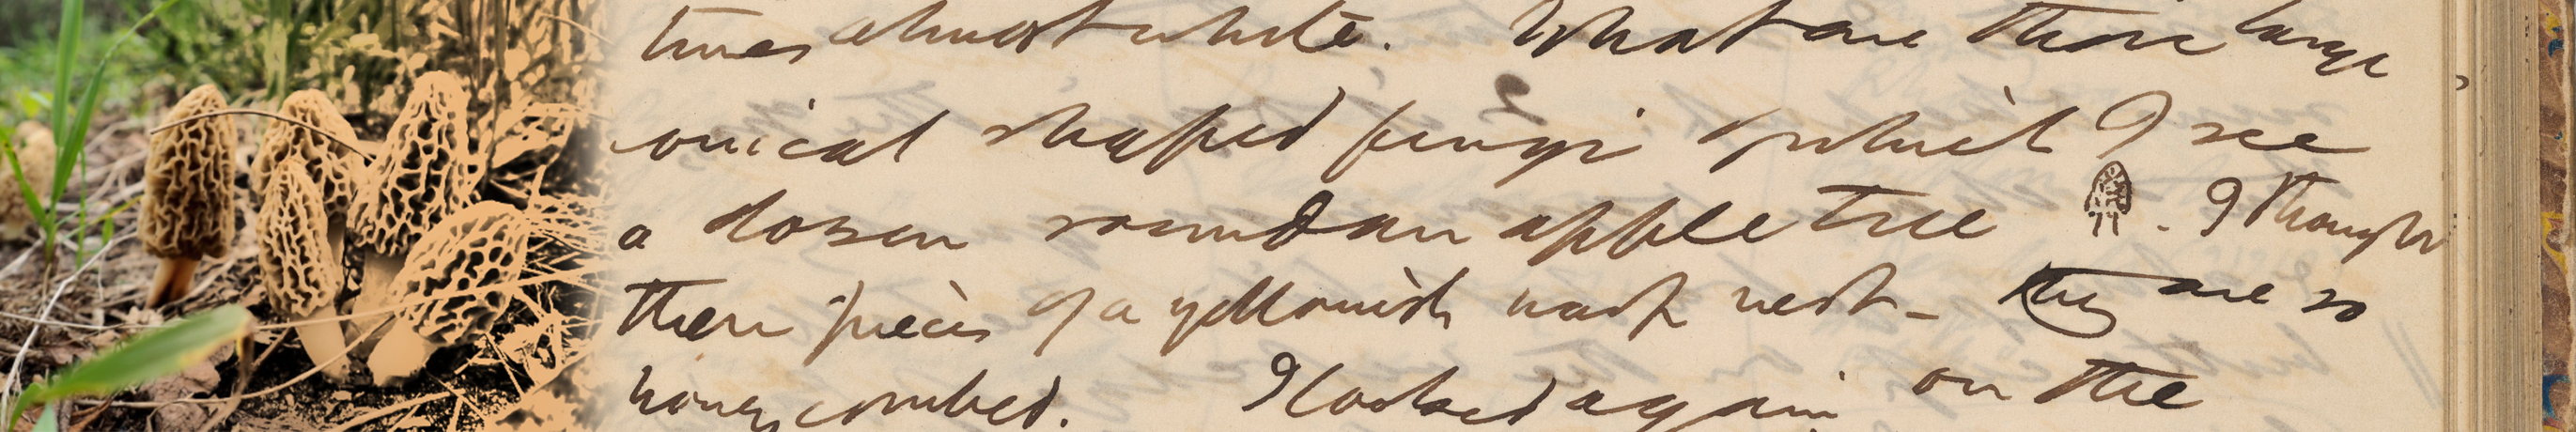 times almost white. What are those large
conical shaped fungi of which I see
a dozen round an apple tree . I thought
them pieces of a yellowish wasp nest— they are so
honey combed. I looked again on the